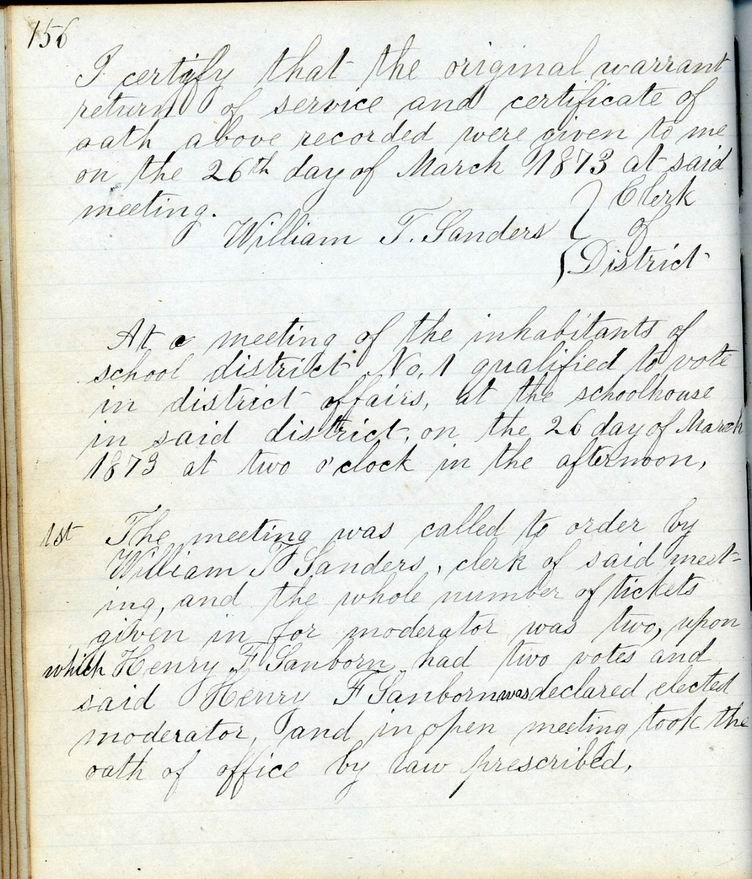 156
I certify that the original warrant
return of service and certificate of
oath above recorded were given to me
on the 26th day of March 1873 at said
meeting.
William T. Sanders } Clerk
of
District
At a meeting of the inhabitants of
school district No. 1 qualified to vote
in district affairs, at the schoolhouse
in said district, on the 26 day of March
1873 at two o'clock in the afternoon,
1st The meeting was called to order by
William T Sanders, clerk of said meet-
ing, and the whole number of tickets
given in for moderator was two, upon
which Henry F Sanborn had two votes and
said Henry F Sanborn was declared elected
moderator, and in open meeting took the
oath of office by law prescribed.